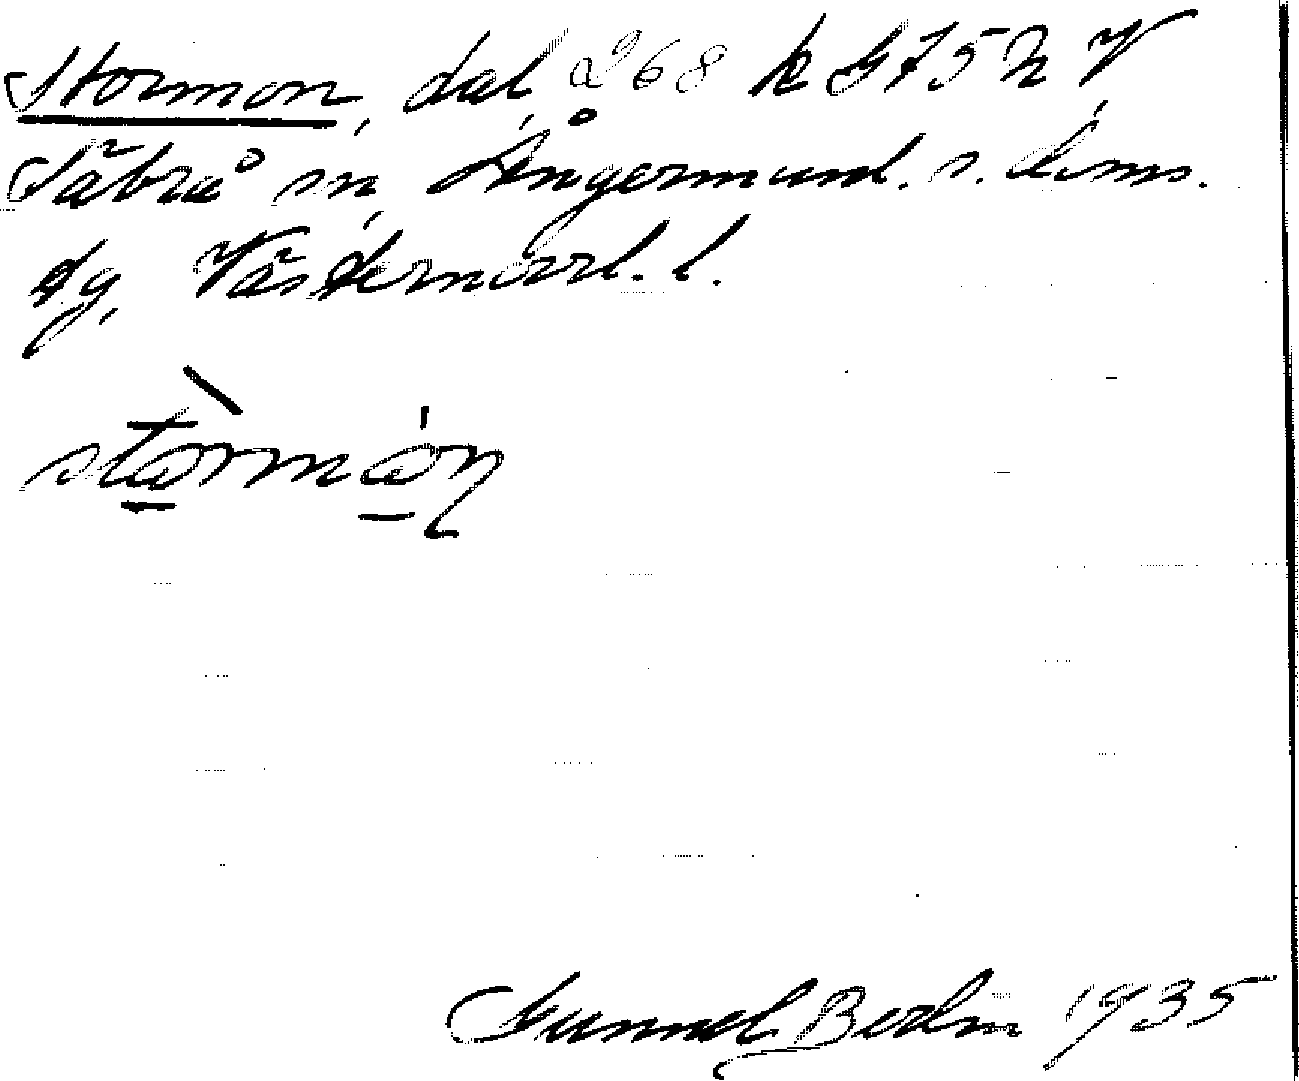 Stormon, dal 268 k G75h V
Säbrå sn, Ångermanl. s. doms.
dg, Västernorrl. l.
stòrmón
Gunnel Berlin 1935